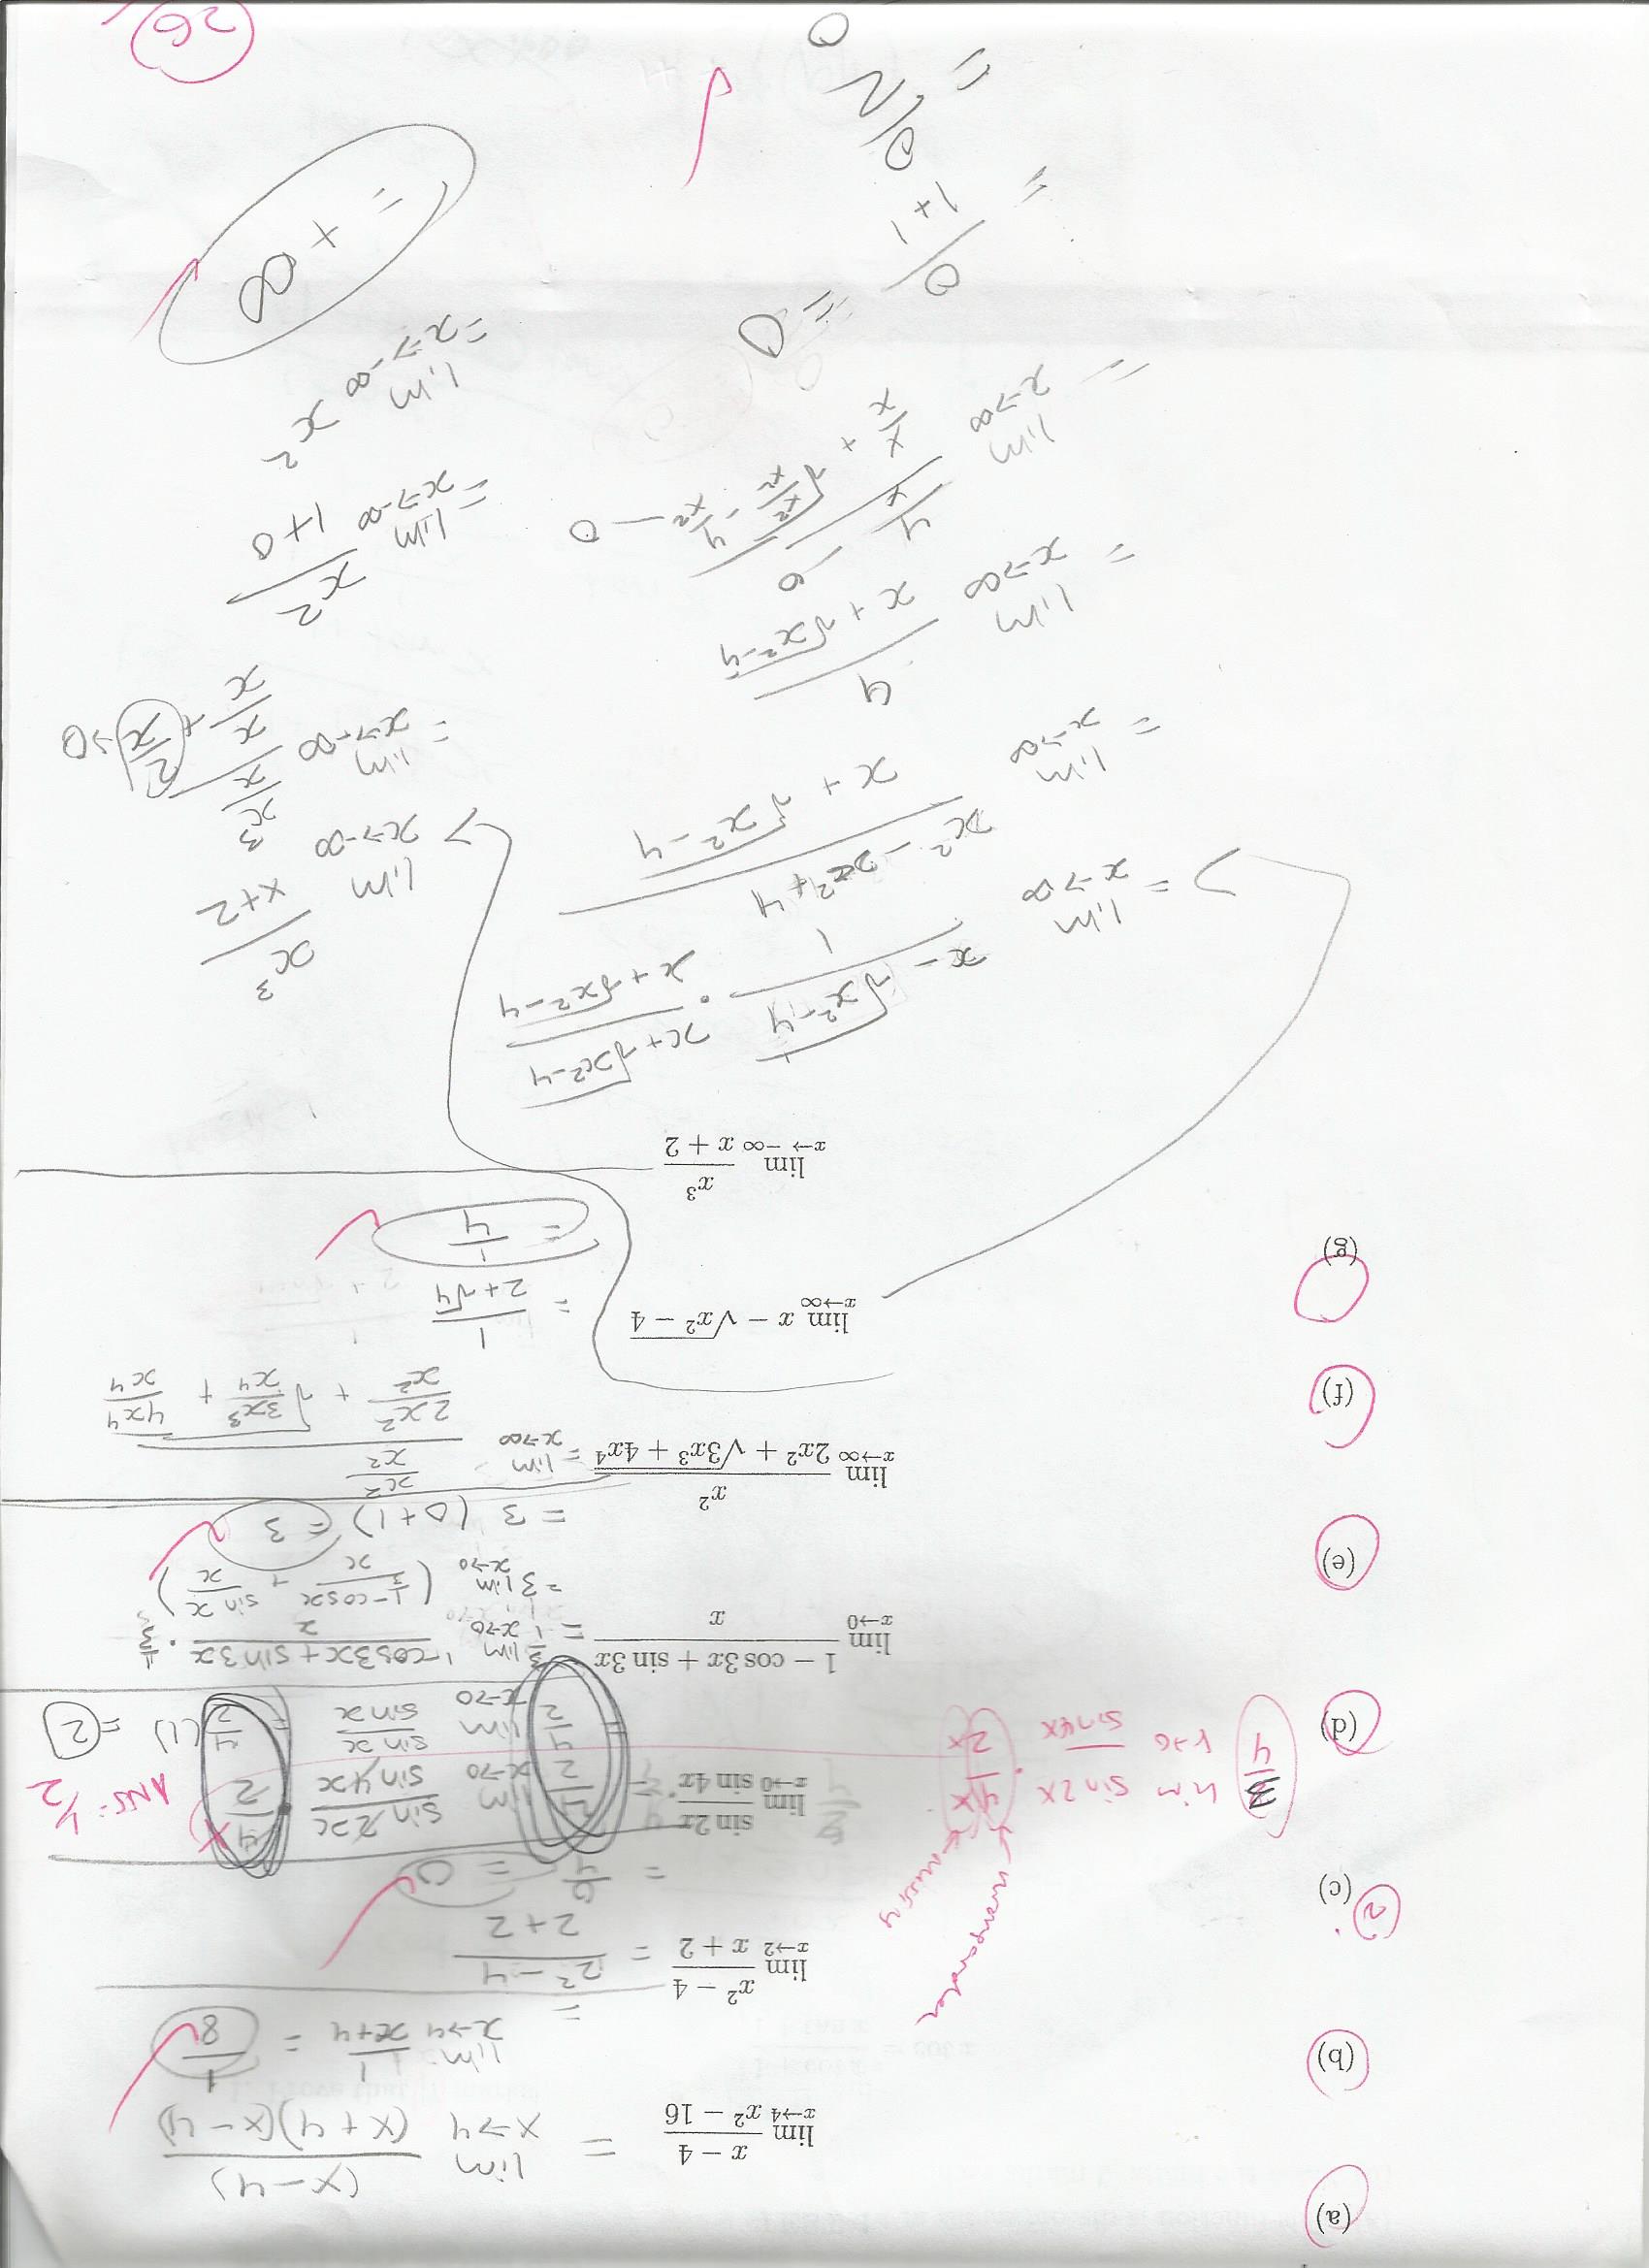 (a) lim x→4 (x − 4)/(x² − 16) = lim x→4 (x−4)/((x+4)(x−4))
lim x→4 1/(x+4) = 1/8
=
(b) lim x→2 (x² − 4)/(x + 2) = (2² − 4)/(2+2)
= 0/4 = 0
(c) lim x→0 sin 2x/sin 4x = 4/2 lim x→0 sin 2x/sin 4x · 2/4
= 4/2 lim x→0 sin x/sin x = 4/2 (1) = 2
ANS: 1/2
2
lim x→0 sin 2x/sin 4x · 4x/2x
(d) lim x→0 (1 − cos 3x + sin 3x)/x = lim x→0 (1−cos3x + sin 3x)/x
= 3 lim x→0 ((1−cos x)/x + sin x/x)
= 3 (0+1) = 3
(e) lim x→∞ x²/(2x² + √(3x³ + 4x⁴)) = lim x→∞ (x²/x²)/(2x²/x² + √(3x³/x⁴ + 4x⁴/x⁴))
= 1/(2+√4)
= 1/4
(f) lim x→∞ x − √(x² − 4)
(g) lim x→−∞ x³/(x + 2)
(x − √(x²−4))/1 · (x+√(x²−4))/(x+√(x²−4))
= lim x→∞ (x² − x² + 4)/(x + √(x²−4))
= lim x→∞ 4/(x + √(x²−4))
= lim x→∞ (4/x)/(x/x + √(x²/x² − 4/x²)) → 0
= 0/(1+1) = 0
= 0/2
= 0
lim x→−∞ x³/(x+2)
= lim x→−∞ (x³/x)/(x/x + 2/x) → 0
= lim x→−∞ x²/(1+0)
= lim x→−∞ x²
= +∞
26